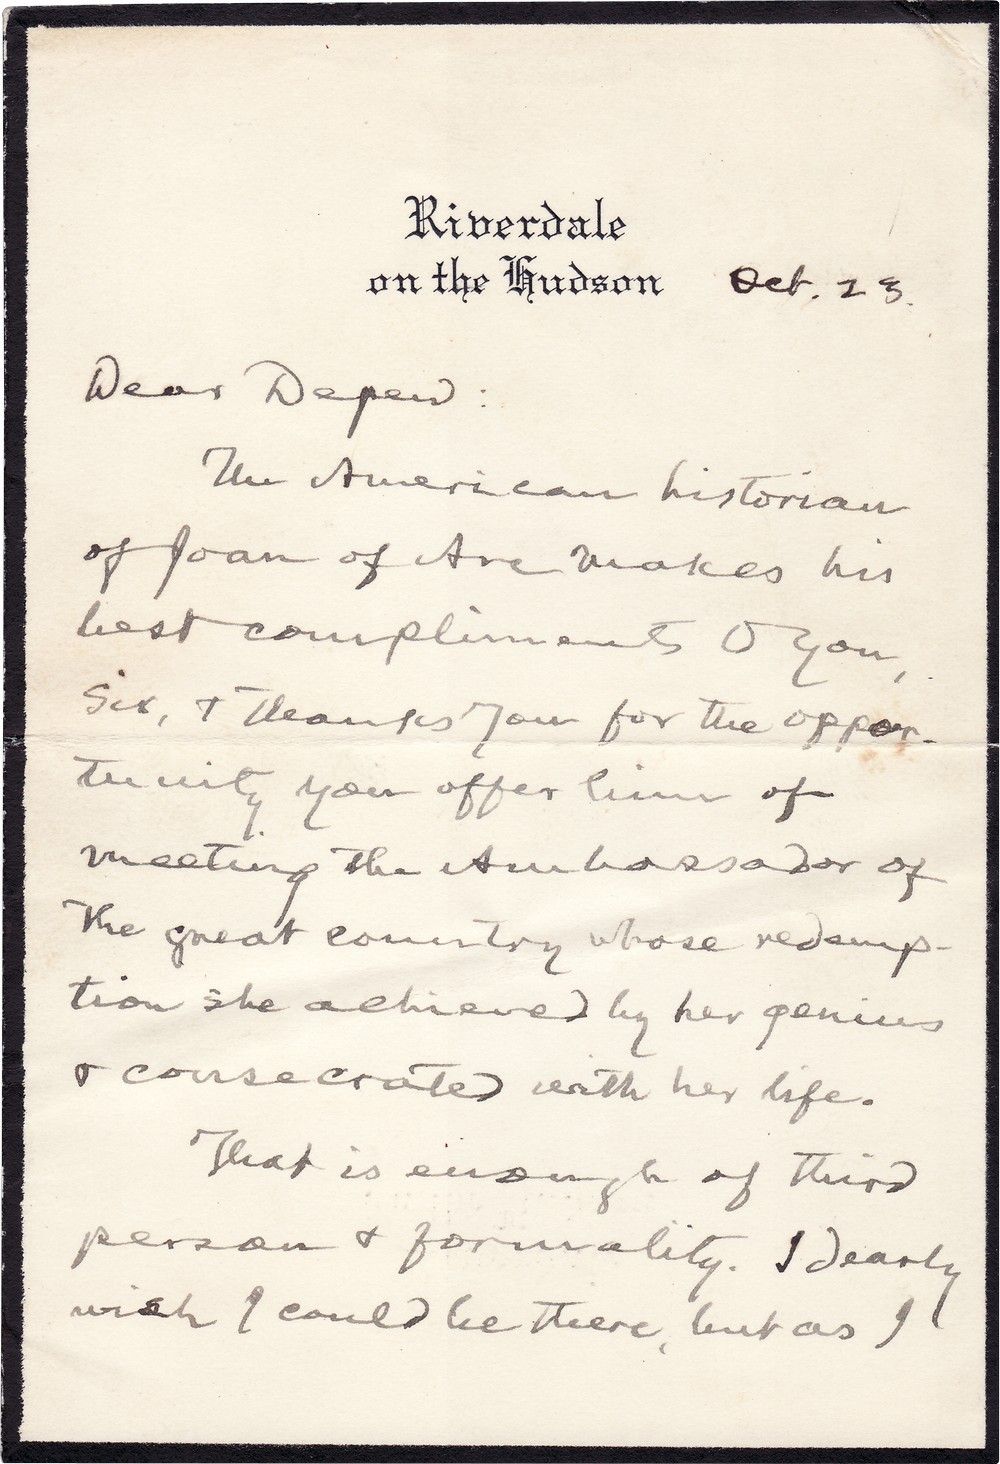 Riverdale
on the Hudson Oct. 23.
Dear Depew:
The American historian
of Joan of Arc makes his
best compliments to you,
Sir, & thanks you for the oppor-
tunity you offer him of
meeting the Ambassador of
the great country whose redemp-
tion she achieved by her genius
& consecrated with her life.
That is enough of third
person & formality. I dearly
wish I could be there, but as I